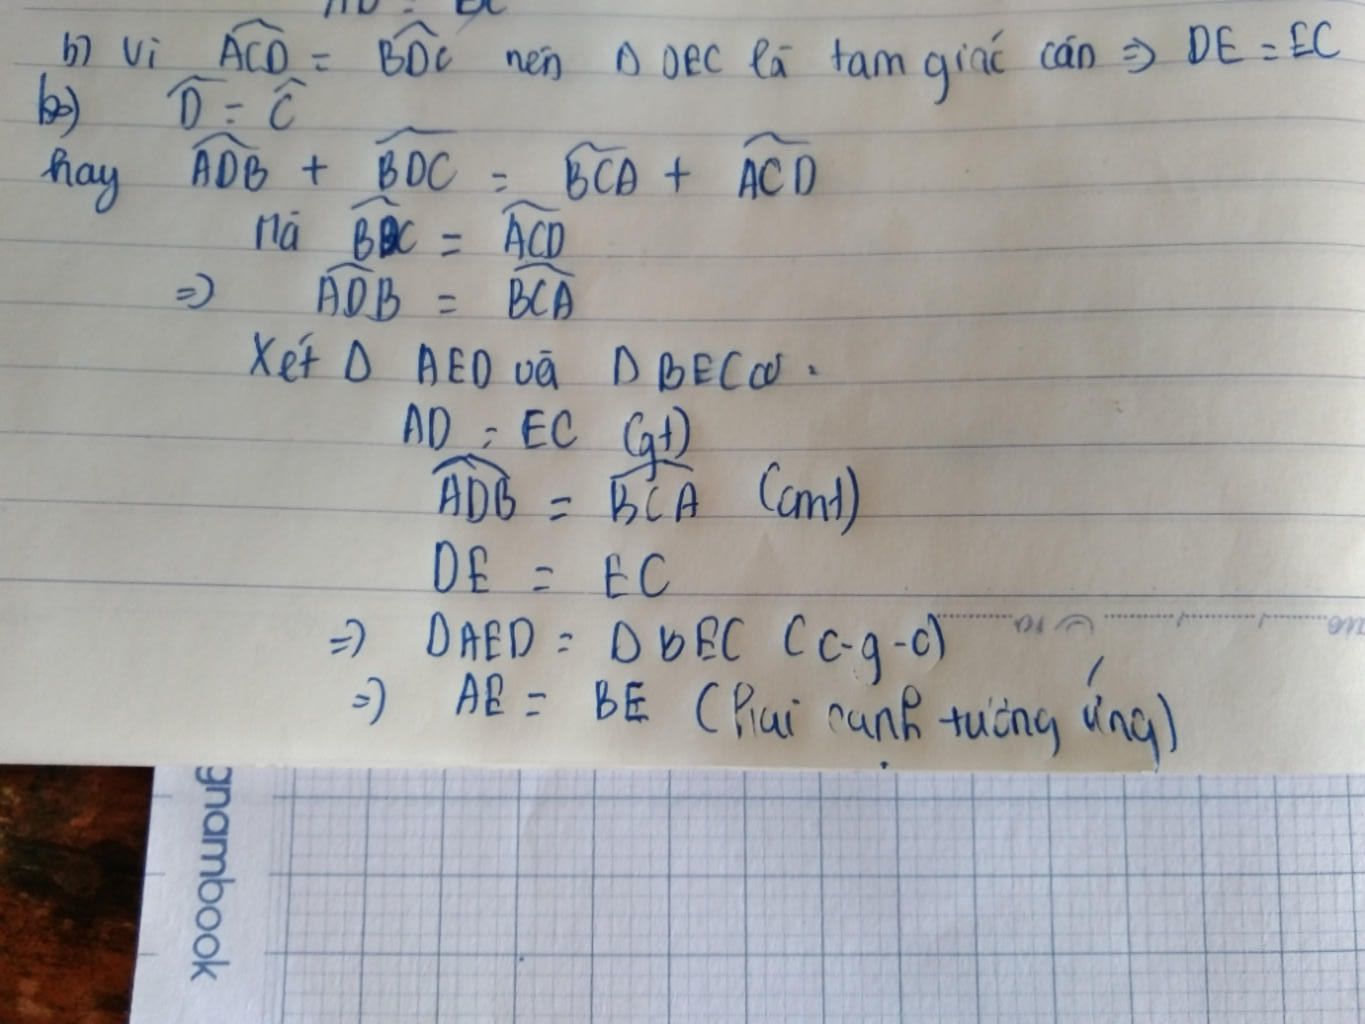 b) Vì ACD = BDC nên Δ DEC là tam giác cân => DE = EC
b) D = C
hay ADB + BDC = BCA + ACD
Mà BDC = ACD
=> ADB = BCA
Xét Δ AED và Δ BEC có.
AD = EC (gt)
ADB = BCA (cmt)
DE = EC
=> ΔAED = Δ BEC (c-g-c)
=> AE = BE (hai cạnh tương ứng)
gnambook